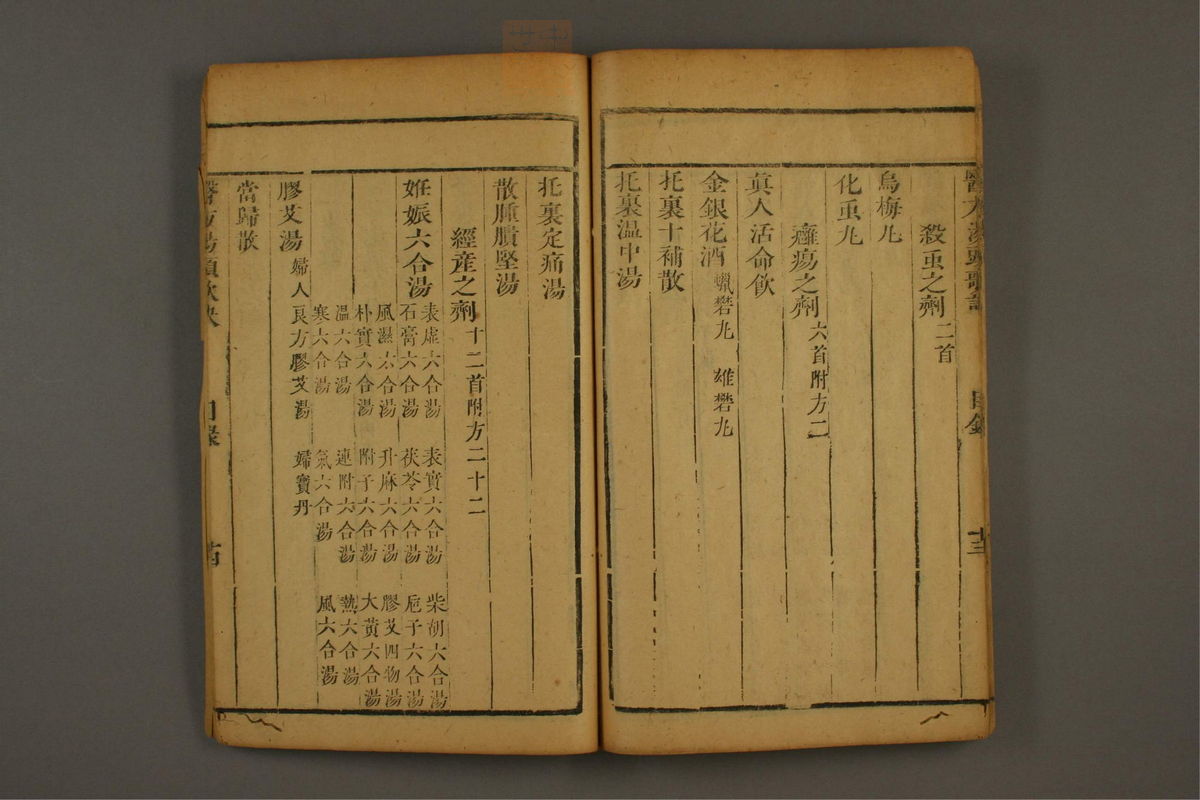 醫方湯頭歌訣 目錄 十三
殺虫之劑 二首
烏梅丸
化虫丸
癰瘍之劑 六首附方二
真人活命飲
金銀花酒 蠟礬丸 雄礬丸
托裏十補散
托裏温中湯
托裏定痛湯
散腫潰堅湯
經產之劑 十二首附方二十二
妊娠六合湯 表虛六合湯 表實六合湯 柴胡六合湯
石膏六合湯 茯苓六合湯 巵子六合湯
風濕六合湯 升麻六合湯 膠艾四物湯
朴實六合湯 附子六合湯 大黃六合湯
温六合湯 連附六合湯 熱六合湯
寒六合湯 氣六合湯 風六合湯
膠艾湯 婦人良方膠艾湯 婦寶丹
當歸散
醫方湯頭歌訣 目錄 十四